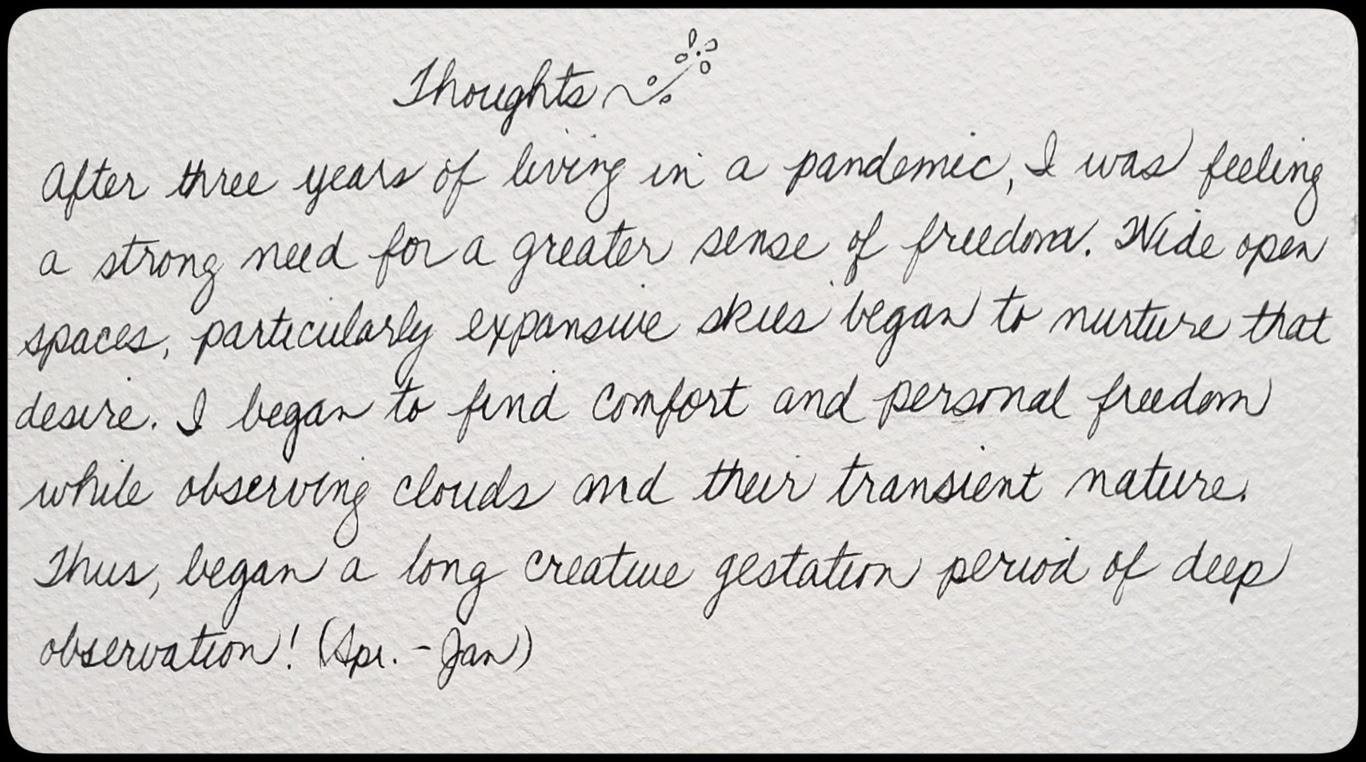 Thoughts
After three years of living in a pandemic, I was feeling
a strong need for a greater sense of freedom. Wide open
spaces, particularly expansive skies began to nurture that
desire. I began to find comfort and personal freedom
while observing clouds and their transient nature.
Thus, began a long creative gestation period of deep
observation! (Apr. - Jan)